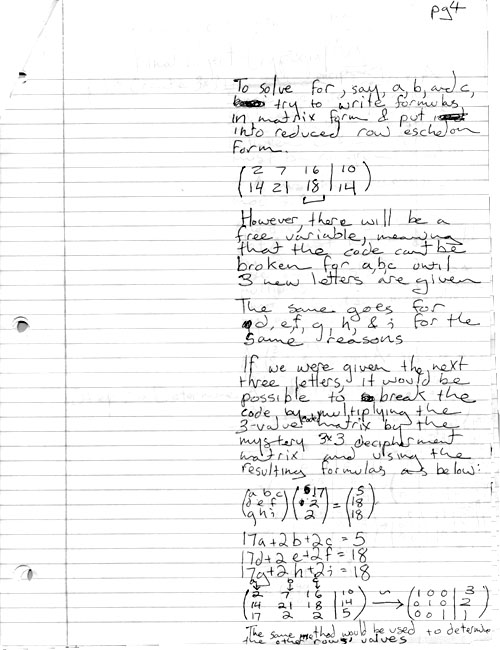 pg4
To solve for, say, a, b, and c,
try to write formulas
in matrix form & put
into reduced row eschelon
form.
( 2 7 16 | 10 )
( 14 21 18 | 14 )
However, there will be a
free variable, meaning
that the code can't be
broken for a,b,c until
3 new letters are given
The same goes for
d, e, f, g, h, & i for the
same reasons
If we were given the next
three letters, it would be
possible to break the
code by multiplying the
3-value code matrix by the
mystery 3x3 decipherment
matrix and using the
resulting formulas as below:
(a b c) (17) = (5)
(d e f) (2) (18)
(g h i) (2) (18)
17a+2b+2c=5
17d+2e+2f=18
17g+2h+2i=18
( 2 7 16 | 10 ) ~ → ( 1 0 0 | 3 )
( 14 21 18 | 14 ) ( 0 1 0 | 2 )
( 17 2 2 | 5 ) ( 0 0 1 | 1 )
The same method would be used to determine
the other rows' values